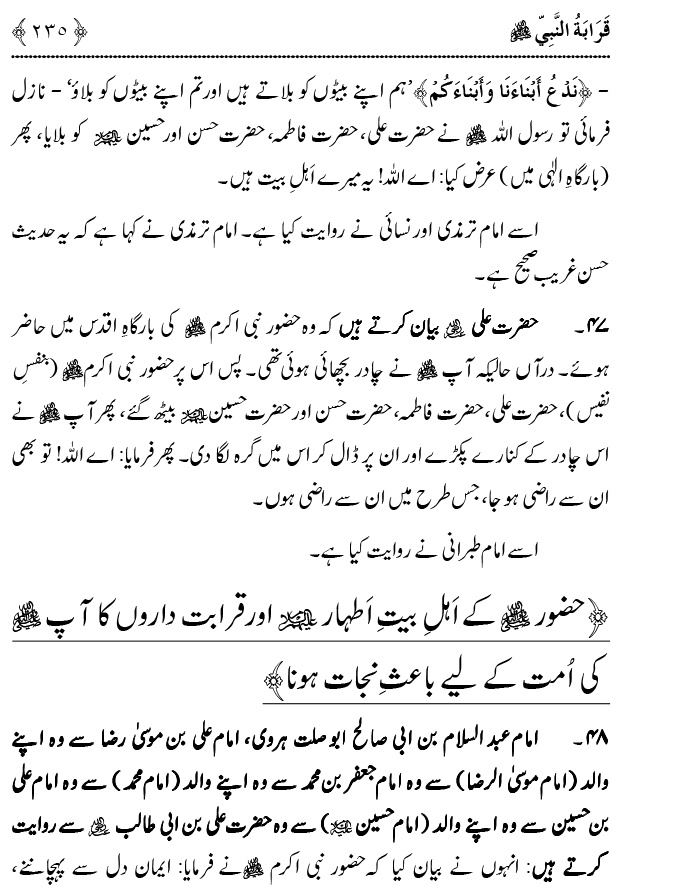 قَرَابَةُ النَّبِيِّ ﷺ ﴿٢٣٥﴾
- ﴿نَدْعُ أَبْنَاءَنَا وَأَبْنَاءَكُمْ﴾ ’ہم اپنے بیٹوں کو بلاتے ہیں اور تم اپنے بیٹوں کو بلاؤ‘ - نازل
فرمائی تو رسول اللہ ﷺ نے حضرت علی، حضرت فاطمہ، حضرت حسن اور حسین علیہم السلام کو بلایا، پھر
(بارگاہِ الٰہی میں) عرض کیا: اے اللہ! یہ میرے اَہلِ بیت ہیں۔
اسے امام ترمذی اور نسائی نے روایت کیا ہے۔ امام ترمذی نے کہا ہے کہ یہ حدیث
حسن غریب صحیح ہے۔
۴۷۔ حضرت علی بیان کرتے ہیں کہ وہ حضور نبی اکرم ﷺ کی بارگاہِ اقدس میں حاضر
ہوئے۔ درآں حالیکہ آپ ﷺ نے چادر بچھائی ہوئی تھی۔ پس اس پر حضور نبی اکرم ﷺ (بنفسِ
نفیس)، حضرت علی، حضرت فاطمہ، حضرت حسن اور حضرت حسین علیہم السلام بیٹھ گئے، پھر آپ ﷺ نے
اس چادر کے کنارے پکڑے اور ان پر ڈال کر اس میں گرہ لگا دی۔ پھر فرمایا: اے اللہ! تو بھی
ان سے راضی ہو جا، جس طرح میں ان سے راضی ہوں۔
اسے امام طبرانی نے روایت کیا ہے۔
﴿حضور ﷺ کے اَہلِ بیتِ اَطہار علیہم السلام اور قرابت داروں کا آپ ﷺ
کی اُمت کے لیے باعثِ نجات ہونا﴾
۴۸۔ امام عبد السلام بن ابی صالح ابو صلت ہروی، امام علی بن موسیٰ رضا سے وہ اپنے
والد (امام موسیٰ الرضا) سے وہ امام جعفر بن محمد سے وہ اپنے والد (امام محمد) سے وہ امام علی
بن حسین سے وہ اپنے والد (امام حسین) سے وہ حضرت علی بن ابی طالب سے روایت
کرتے ہیں: انہوں نے بیان کیا کہ حضور نبی اکرم ﷺ نے فرمایا: ایمان دل سے پہچاننے،